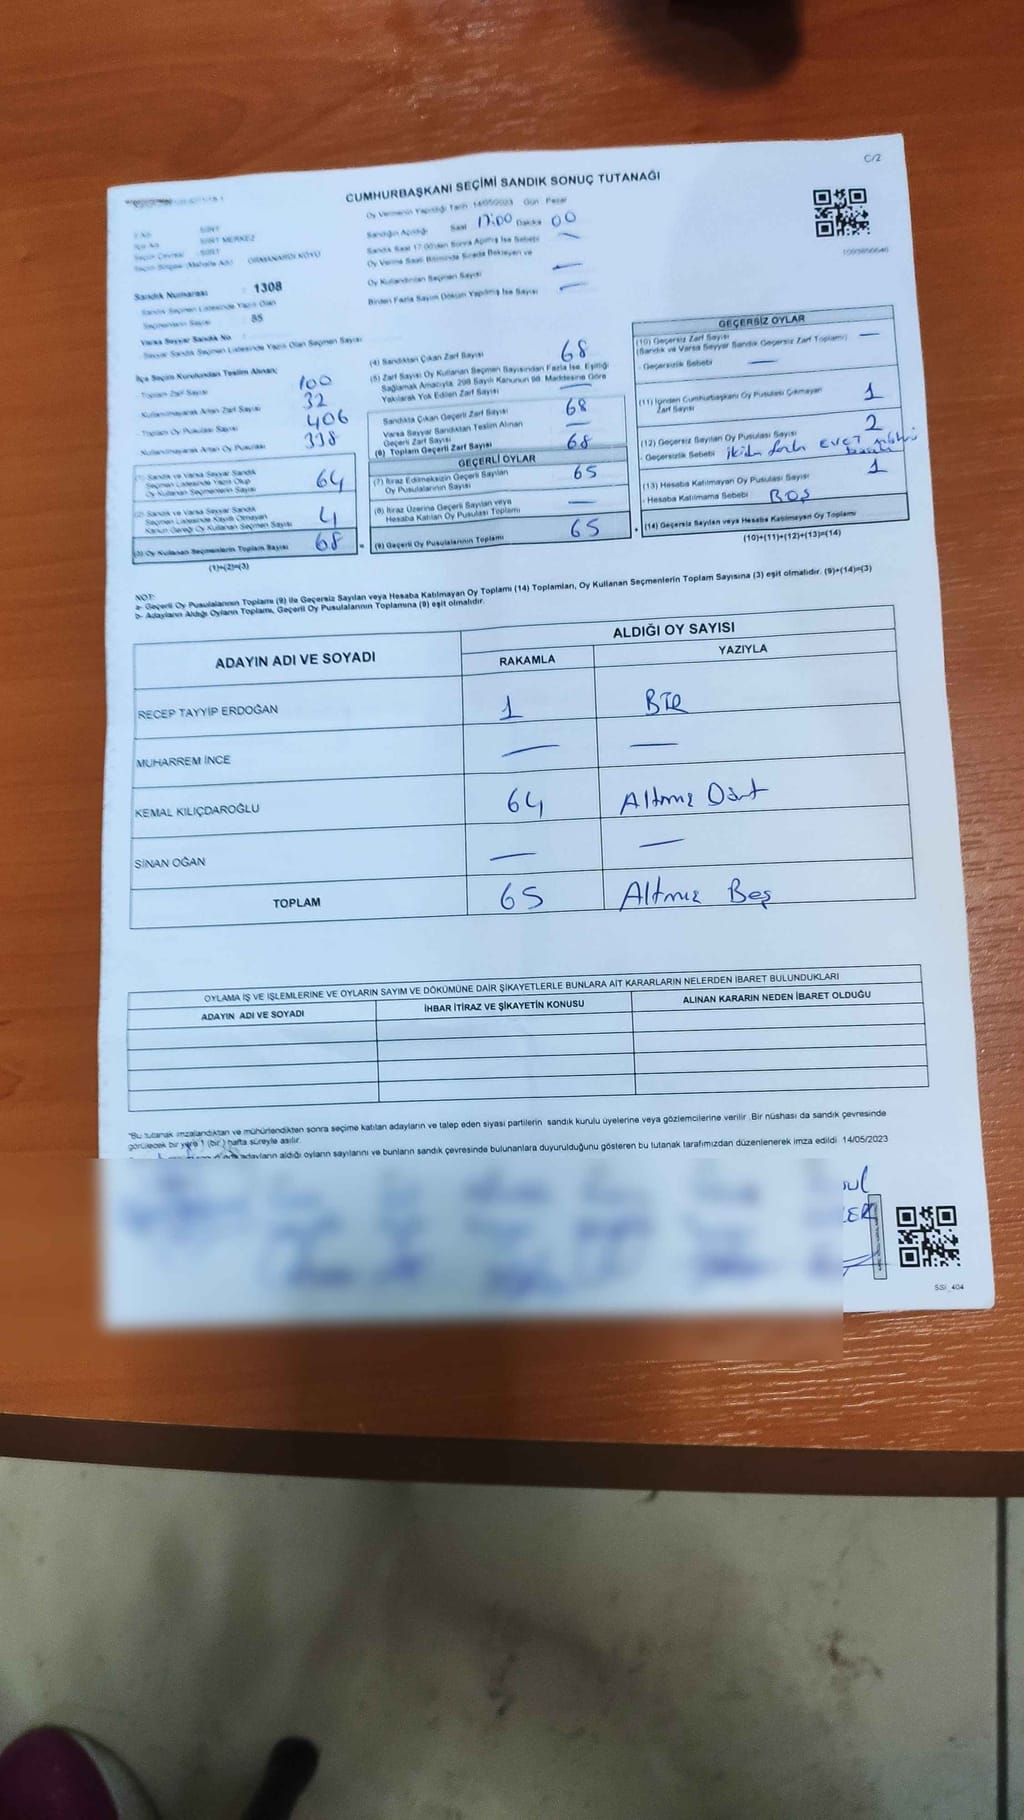 C/2
CUMHURBAŞKANI SEÇİMİ SANDIK SONUÇ TUTANAĞI
Oy Vermenin Yapıldığı Tarih 14/05/2023 Gün Pazar
Sandığın Açıldığı Saat 17:00 Dakika 00
Sandık Saat 17:00'den Sonra Açılmış İse Sebebi —
Oy Verme Saati Bitiminde Sırada Bekleyen ve
Oy Kullandırılan Seçmen Sayısı —
Birden Fazla Sayım Döküm Yapılmış İse Sayısı —
İl Adı SİİRT
İlçe Adı SİİRT MERKEZ
Seçim Çevresi SİİRT
Seçim Bölgesi (Mahalle Adı) ORMANARDI KÖYÜ
Sandık Numarası : 1308
Sandık Seçmen Listesinde Yazılı Olan
Seçmenlerin Sayısı : 85
Varsa Seyyar Sandık No
Seyyar Sandık Seçmen Listesinde Yazılı Olan Seçmen Sayısı
İlçe Seçim Kurulundan Teslim Alınan;
Toplam Zarf Sayısı 100
Kullanılmayarak Artan Zarf Sayısı 32
Toplam Oy Pusulası Sayısı 406
Kullanılmayarak Artan Oy Pusulası 338
(1) Sandık ve Varsa Seyyar Sandık
Seçmen Listesinde Yazılı Olup
Oy Kullanan Seçmenlerin Sayısı 64
(2) Sandık ve Varsa Seyyar Sandık
Seçmen Listesinde Kayıtlı Olmayan
Kanun Gereği Oy Kullanan Seçmen Sayısı 4
(3) Oy Kullanan Seçmenlerin Toplam Sayısı 68
(1)+(2)=(3)
(4) Sandıktan Çıkan Zarf Sayısı 68
(5) Zarf Sayısı Oy Kullanan Seçmen Sayısından Fazla İse, Eşitliği
Sağlamak Amacıyla, 298 Sayılı Kanunun 98. Maddesine Göre
Yakılarak Yok Edilen Zarf Sayısı —
Sandıkta Çıkan Geçerli Zarf Sayısı 68
Varsa Seyyar Sandıktan Teslim Alınan
Geçerli Zarf Sayısı —
(6) Toplam Geçerli Zarf Sayısı 68
GEÇERLİ OYLAR
(7) İtiraz Edilmeksizin Geçerli Sayılan
Oy Pusulalarının Sayısı 65
(8) İtiraz Üzerine Geçerli Sayılan veya
Hesaba Katılan Oy Pusulası Toplamı —
(9) Geçerli Oy Pusulalarının Toplamı 65
GEÇERSİZ OYLAR
(10) Geçersiz Zarf Sayısı
(Sandık ve Varsa Seyyar Sandık Geçersiz Zarf Toplamı) —
- Geçersizlik Sebebi —
(11) İçinden Cumhurbaşkanı Oy Pusulası Çıkmayan
Zarf Sayısı 1
(12) Geçersiz Sayılan Oy Pusulası Sayısı 2
- Geçersizlik Sebebi EVET
(13) Hesaba Katılmayan Oy Pusulası Sayısı 1
- Hesaba Katılmama Sebebi BOŞ
(14) Geçersiz Sayılan veya Hesaba Katılmayan Oy Toplamı
(10)+(11)+(12)+(13)=(14)
NOT:
a- Geçerli Oy Pusulalarının Toplamı (9) ile Geçersiz Sayılan veya Hesaba Katılmayan Oy Toplamı (14) Toplamları, Oy Kullanan Seçmenlerin Toplam Sayısına (3) eşit olmalıdır. (9)+(14)=(3)
b- Adayların Aldığı Oyların Toplamı, Geçerli Oy Pusulalarının Toplamına (9) eşit olmalıdır.
ADAYIN ADI VE SOYADI
ALDIĞI OY SAYISI
RAKAMLA YAZIYLA
RECEP TAYYİP ERDOĞAN 1 BİR
MUHARREM İNCE — —
KEMAL KILIÇDAROĞLU 64 Altmış Dört
SİNAN OĞAN — —
TOPLAM 65 Altmış Beş
OYLAMA İŞ VE İŞLEMLERİNE VE OYLARIN SAYIM VE DÖKÜMÜNE DAİR ŞİKAYETLERLE BUNLARA AİT KARARLARIN NELERDEN İBARET BULUNDUKLARI
ADAYIN ADI VE SOYADI İHBAR İTİRAZ VE ŞİKAYETİN KONUSU ALINAN KARARIN NEDEN İBARET OLDUĞU
*Bu tutanak imzalandıktan ve mühürlendikten sonra seçime katılan adayların ve talep eden siyasi partilerin sandık kurulu üyelerine veya gözlemcilerine verilir. Bir nüshası da sandık çevresinde
görülecek bir yere 1 (bir) hafta süreyle asılır.
adayların aldığı oyların sayılarını ve bunların sandık çevresinde bulunanlara duyurulduğunu gösteren bu tutanak tarafımızdan düzenlenerek imza edildi 14/05/2023
SSİ_404